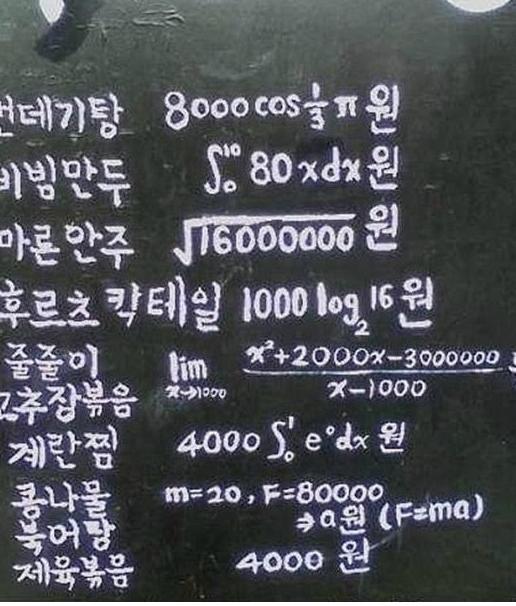 번데기탕 8000cos⅓π원
비빔만두 ∫₀¹⁰ 80xdx원
마른안주 √16000000원
후르츠칵테일 1000log₂16원
줄줄이
고추잡볶음 lim x→1000 x²+2000x-3000000 / x-1000
계란찜 4000∫₀¹ e⁰dx원
콩나물
북어탕 m=20, F=80000
⇒a원 (F=ma)
제육볶음 4000원